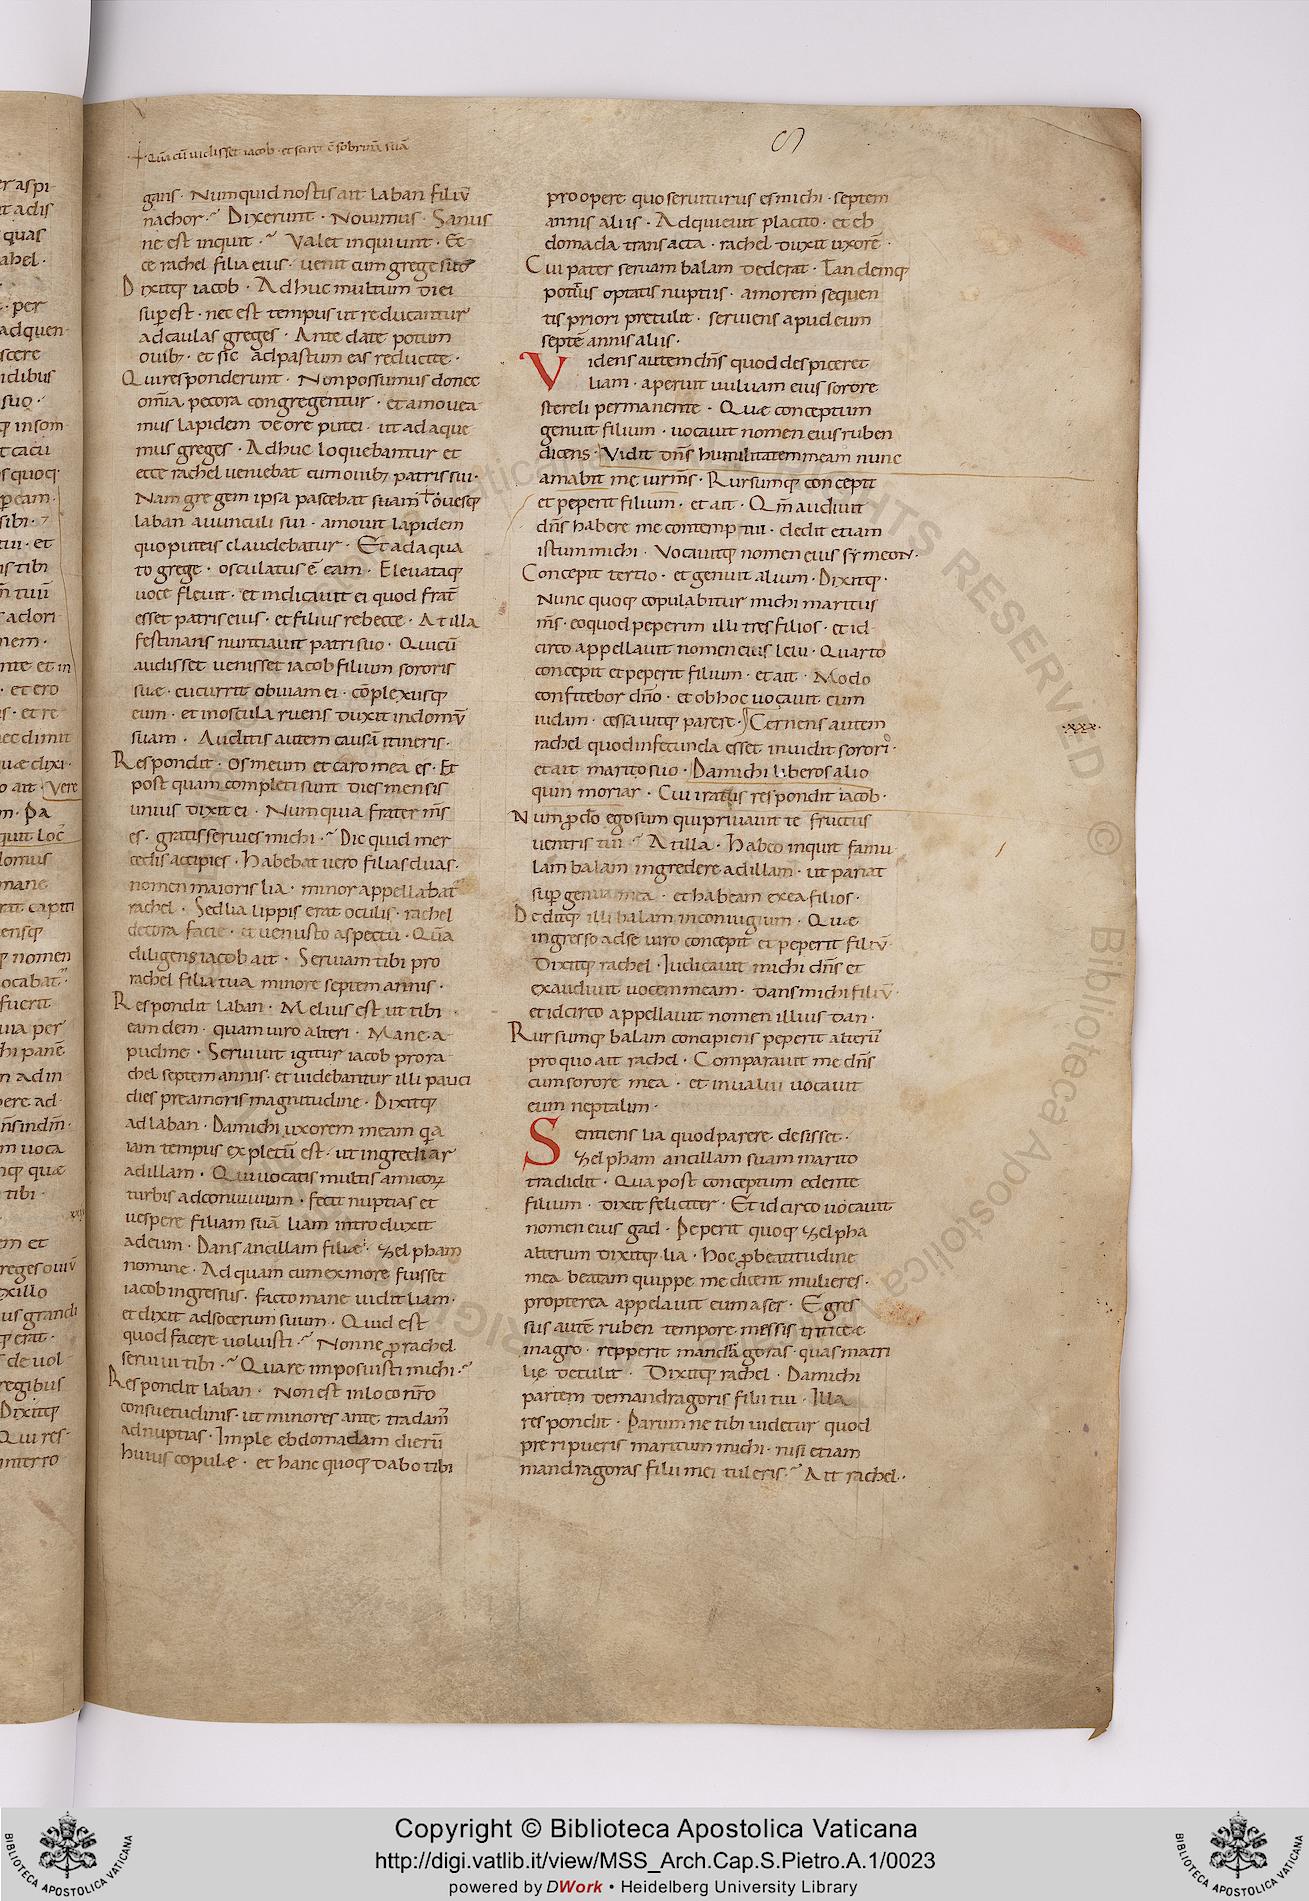 Quā cū uidisset iacob · et sciret eē sobrinā suā
S
gans · Numquid nostis ait laban filiū
nachor · Dixerunt · Nouimus · Sanus
ne est inquit · Valet inquiunt · Ec
ce rachel filia eius · uenit cum grege suo
Dixitq; iacob · Adhuc multum diei
sup̄est · nec est tempus ut reducantur
ad caulas greges · Ante date potum
ouib; · et sic ad pastum eas reducite ·
Qui responderunt · Non possumus donec
om̄ia pecora congregentur · et amouea
mus lapidem de ore putei · ut adaque
mus greges · Adhuc loquebantur et
ecce rachel ueniebat cum ouib; patris sui ·
Nam gregem ipsa pascebat suam · ouesq;
laban auunculi sui · amouit lapidem
quo puteus claudebatur · Et adaqua
to grege · osculatus ē eam · Eleuataq;
uoce fleuit · et indicauit ei quod frat̄
esset patris eius · et filius rebecce · At illa
festinans nuntiauit patri suo · Qui cū
audisset uenisset iacob filium sororis
suæ · cucurrit obuiam ei · cōplexusq;
eum · et in oscula ruens duxit in domū
suam · Auditis autem causā itineris ·
Respondit · Os meum et caro mea es · Et
post quam completi sunt dies mensis
unius dixit ei · Num quia frater m̄s
es · gratis seruies michi · Dic quid mer
cedis accipies · Habebat uero filias duas ·
nomen maioris lia · minor appellabat̄
rachel · Sed lia lippis erat oculis · rachel
decora facie · et uenusto aspectu · Quā
diligens iacob ait · Seruiam tibi pro
rachel filia tua minore septem annis ·
Respondit laban · Melius est ut tibi
eam dem · quam uiro alteri · Mane a
pud me · Seruiuit igitur iacob pro ra
chel septem annis · et uidebantur illi pauci
dies pre amoris magnitudine · Dixitq;
ad laban · Da michi uxorem meam q̄a
iam tempus expletū est · ut ingrediar
ad illam · Qui uocatis multis amicoꝝ
turbis ad conuiuium · fecit nuptias et
uespere filiam suā liam introduxit
ad eum · Dans ancillam filiæ · zelpham
nomine · Ad quam cum ex more fuisset
iacob ingressus · facto mane uidit liam ·
et dixit ad socerum suum · Quid est
quod facere uoluisti · Nonne ꝓ rachel
seruiui tibi · Quare imposuisti michi ·
Respondit laban · Non est in loco nr̄o
consuetudinis · ut minores ante tradam̄
ad nuptias · Imple ebdomadam dierū
huius copulæ · et hanc quoq; dabo tibi
pro opere quo seruiturus es michi · septem
annis aliis · Adquieuit placito · et eb
domada transacta · rachel duxit uxorē ·
Cui pater seruam balam dederat · Tandemq;
potitus optatis nuptiis · amorem sequen
tis priori pretulit · seruiens apud eum
septē annis aliis ·
Videns autem dn̄s quod despiceret
liam · aperuit uuluam eius sorore
stereli permanente · Quæ conceptum
genuit filium · uocauit nomen eius ruben
dicens · Vidit dn̄s humilitatem meam nunc
amabit me uir m̄s · Rursumq; concepit
et peperit filium · et ait · Qm̄ audiuit
dn̄s habere me contemptui · dedit etiam
istum michi · Vocauitq; nomen eius symeon ·
Concepit tertio · et genuit alium · Dixitq; ·
Nunc quoq; copulabitur michi maritus
m̄s · eo quod peperim illi tres filios · et id
circo appellauit nomen eius leui · Quarto
concepit et peperit filium · et ait · Modo
confitebor dn̄o · et ob hoc uocauit eum
iudam · cessauitq; parere · Cernens autem
·xxx·
rachel quod infecunda esset inuidit sorori
et ait marito suo · Da michi liberos alio
quin moriar · Cui iratus respondit iacob ·
Num ꝓ dō ego sum qui priuauit te fructus
uentris tui · At illa · Habeo inquit famu
lam balam ingredere ad illam · ut pariat
sup̄ genua mea · et habeam ex ea filios ·
Deditq; illi balam in coniugium · Quæ
ingresso ad se uiro concepit et peperit filiū
Dixitq; rachel · Iudicauit michi dn̄s et
exaudiuit uocem meam · dans michi filiū ·
et idcirco appellauit nomen illius dan ·
Rursumq; balam concipiens peperit alterū
pro quo ait rachel · Comparauit me dn̄s
cum sorore mea · et inualui uocauit
eum neptalim ·
Sentiens lia quod parere desisset ·
zelpham ancillam suam marito
tradidit · Qua post conceptum edente
filium · dixit feliciter · Et idcirco uocauit
nomen eius gad · Peperit quoq; zelpha
alterum dixitq; lia · Hoc ꝓ beatitudine
mea beatam quippe me dicent mulieres ·
propterea appellauit eum aser · Egres
sus autē ruben tempore messis triticeę
in agro · repperit mandragoras · quas matri
lię detulit · Dixitq; rachel · Da michi
partem de mandragoris filii tui · Illa
respondit · Parum ne tibi uidetur quod
preripueris maritum michi · nisi etiam
mandragoras filii mei tuleris · Ait rachel ·
Copyright © Biblioteca Apostolica Vaticana
http://digi.vatlib.it/view/MSS_Arch.Cap.S.Pietro.A.1/0023
powered by DWork • Heidelberg University Library
BIBLIOTECA APOSTOLICA VATICANA
BIBLIOTECA APOSTOLICA VATICANA